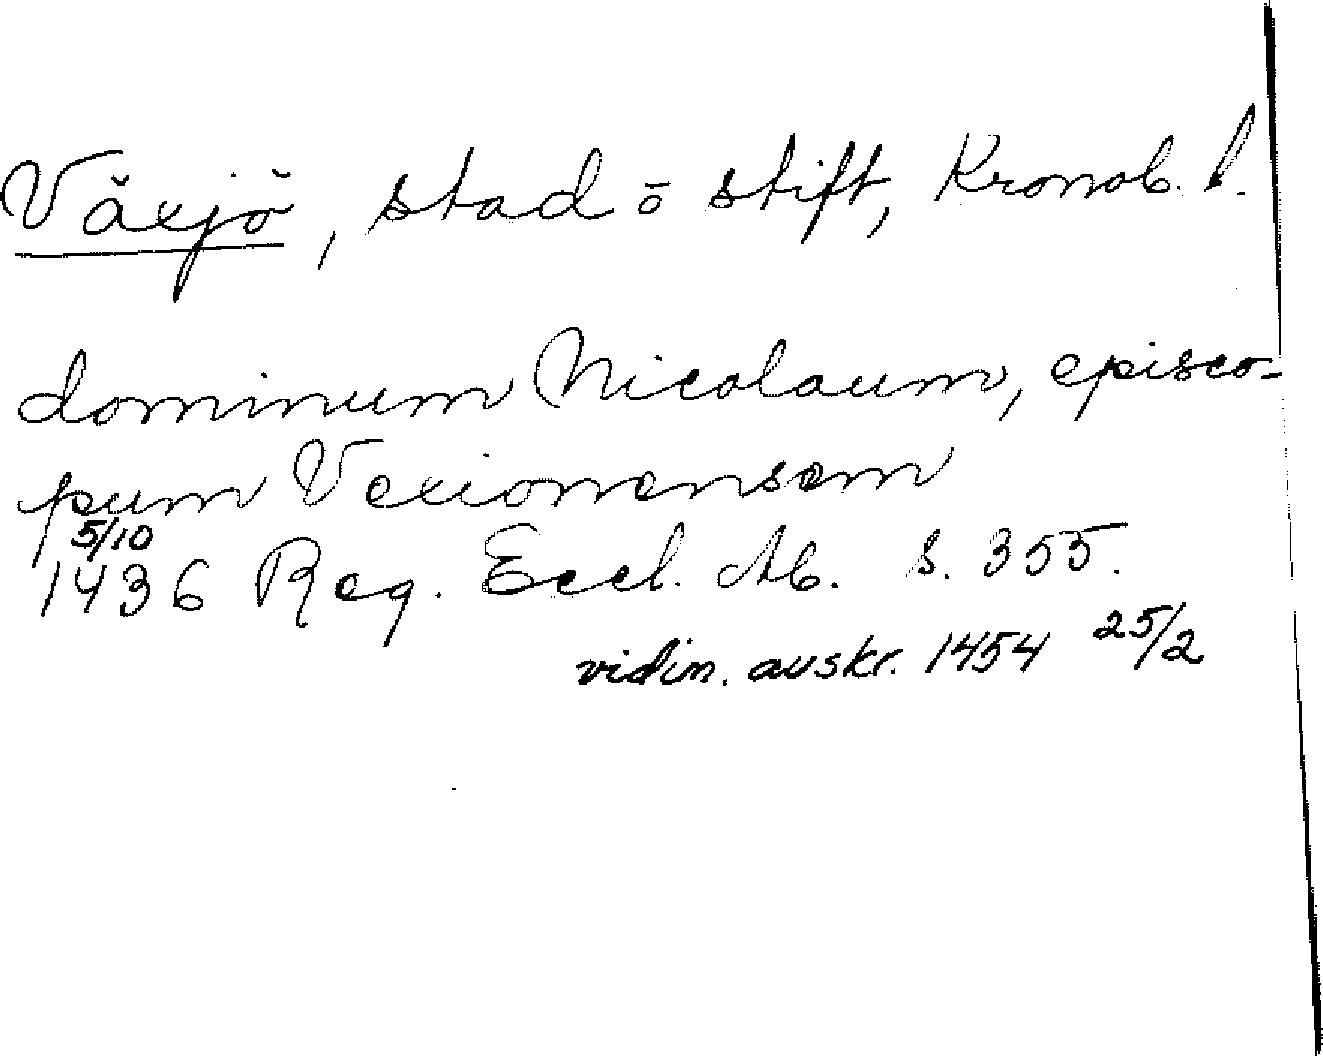 Växjö, stad ō stift, Kronob. l.
dominum Nicolaum, episco-
pum Vexionensem
5/10
1436 Reg. Eccl. Ab. s. 355.
vidim. avskr. 1454 25/2